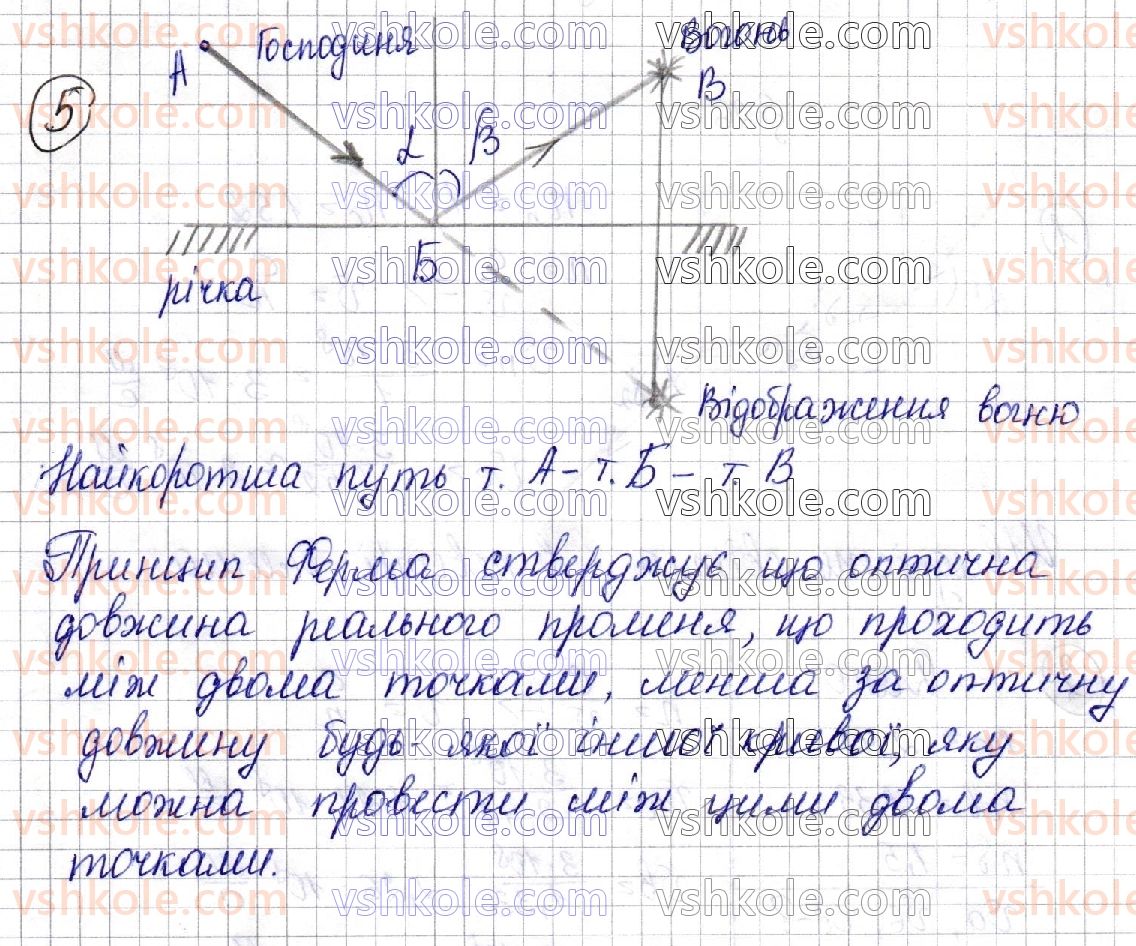 5
А
Господиня
Вогонь
В
α β
Б
річка
Відображення вогню
Найкоротша путь т. А - т. Б - т. В
Принцип Ферма стверджує що оптична
довжина реального променя, що проходить
між двома точками, менша за оптичну
довжину будь-якої іншої кривої, яку
можна провести між цими двома
точками.
vshkole.com